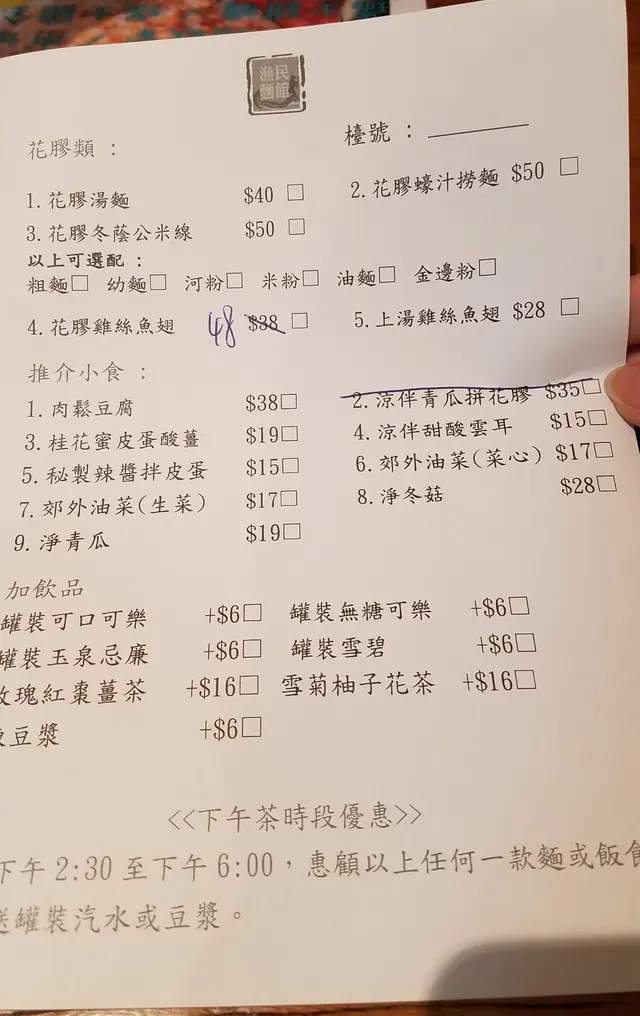 漁民
麵館
檯號：
花膠類：
1.花膠湯麵 $40 □ 2.花膠蠔汁撈麵 $50 □
3.花膠冬蔭公米線 $50 □
以上可選配：
粗麵□ 幼麵□ 河粉□ 米粉□ 油麵□ 金邊粉□
4.花膠雞絲魚翅 48 $38 □ 5.上湯雞絲魚翅 $28 □
推介小食：
1.肉鬆豆腐 $38□ 2.涼伴青瓜拼花膠 $35□
3.桂花蜜皮蛋酸薑 $19□ 4.涼伴甜酸雲耳 $15□
5.秘製辣醬拌皮蛋 $15□ 6.郊外油菜(菜心) $17□
7.郊外油菜(生菜) $17□ 8.淨冬菇 $28□
9.淨青瓜 $19□
加飲品
罐裝可口可樂 +$6□ 罐裝無糖可樂 +$6□
罐裝玉泉忌廉 +$6□ 罐裝雪碧 +$6□
玫瑰紅棗薑茶 +$16□ 雪菊柚子花茶 +$16□
豆漿 +$6□
<<下午茶時段優惠>>
下午2:30至下午6:00，惠顧以上任何一款麵或飯食
送罐裝汽水或豆漿。